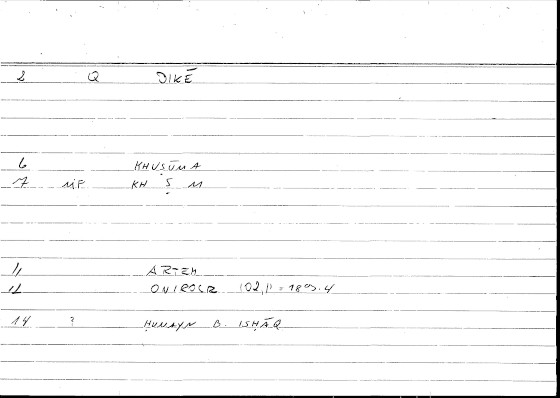 2 Q DIKĒ
6 KHUṢŪMA
7 MF KH Ṣ M
11 ARTEM
12 ONIROCR 102,11 = 189.4
14 ? ḤUNAYN B. ISḤĀQ